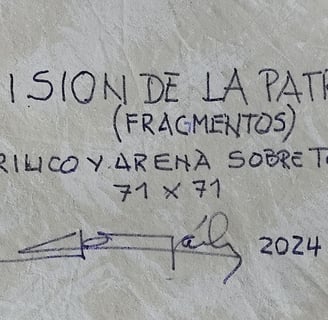 ISION DE LA PATR
(FRAGMENTOS)
RILICO Y ARENA SOBRE T
71 X 71
2024